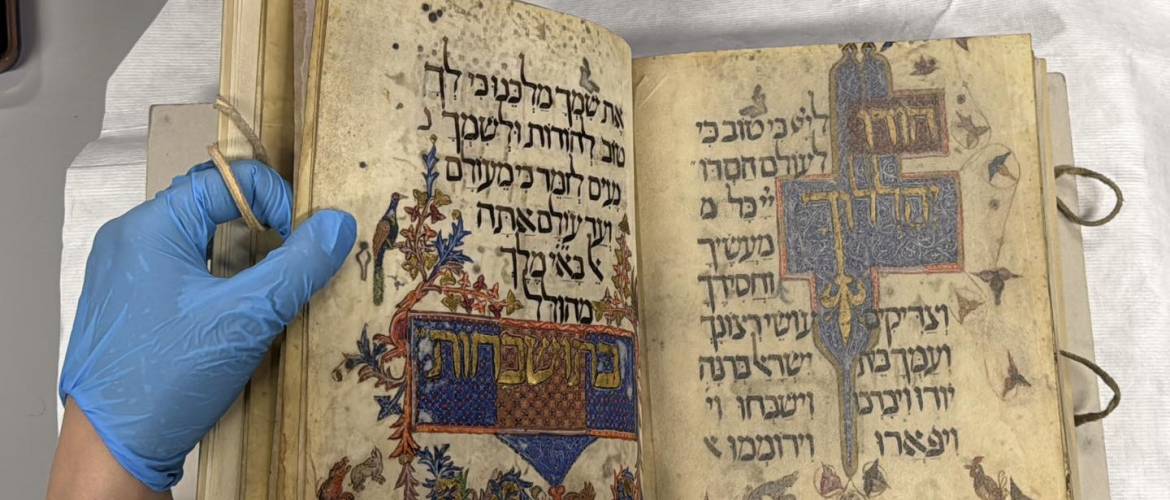 הודו
ליי כי טוב כי
לעולם חסדו
יהללוך
יי כל מ
מעשיך
וחסידיך
וצדיקים עושי רצונך
ועמך בית ישראל ברנה
יודו ויברכו וישבחו וי
ויפארו וירוממו א
את שמך מלכנו כי לך
טוב להודות ולשמך נ
נעים לזמר כי מעולם
ועד עולם אתה
מלך
מהולל
בתושבחות